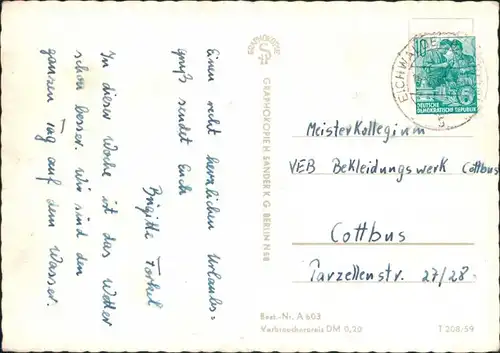 Einen recht herzlichen Urlaubs=
gruß sendet Euch
Brigitte
In dieser Woche ist das Wetter
schon besser. Wir sind den
ganzen Tag auf dem Wasser.
GRAPHOKOPIE H. SANDER K. G. BERLIN N 58
10
DEUTSCHE
DEMOKRATISCHE REPUBLIK
EICHWALDE
Meisterkollegium
VEB Bekleidungswerk Cottbus
Cottbus
Parzellenstr. 27/28
Best.-Nr. A 603
Verbraucherpreis DM 0,20
T 208/59